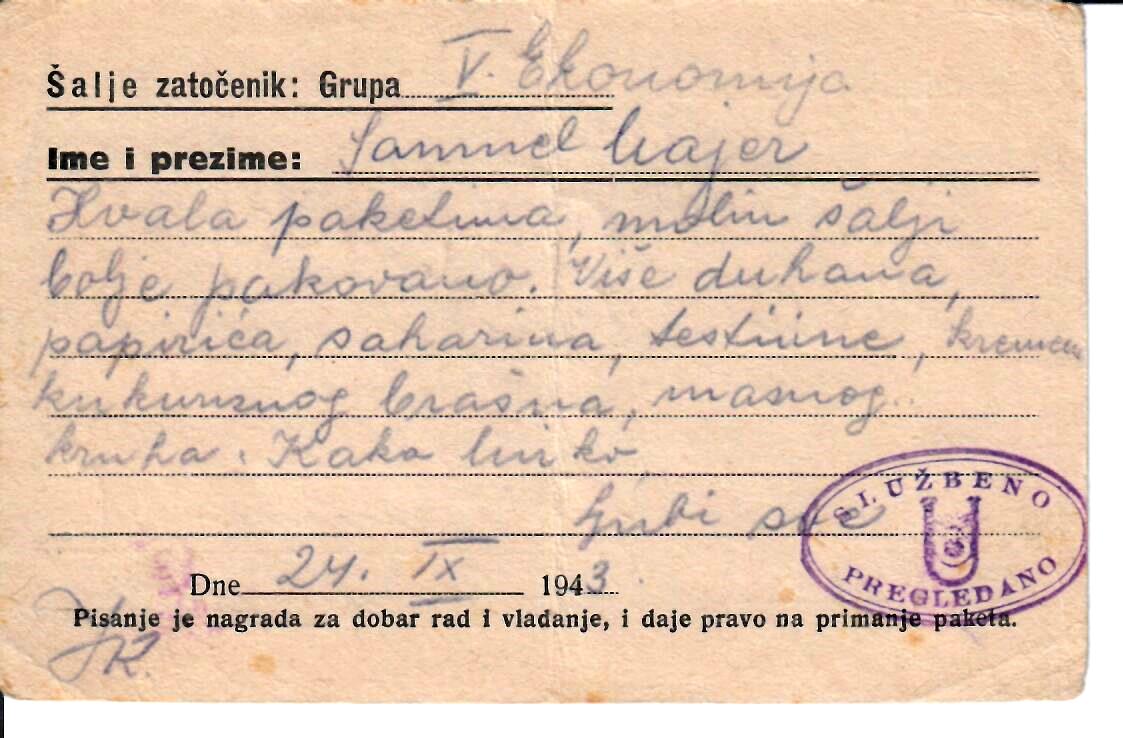 Šalje zatočenik: Grupa V. Ekonomija
Ime i prezime: Samuel Majer
Hvala paketima, molim šalji
bolje pakovano. Više duhana,
papirića, saharina, kremen
kukuruznog brašna, masnog
kruha. Kako
Ljubi sve
SLUŽBENO
U
PREGLEDANO
Dne 24. IX 1943.
Pisanje je nagrada za dobar rad i vladanje, i daje pravo na primanje paketa.